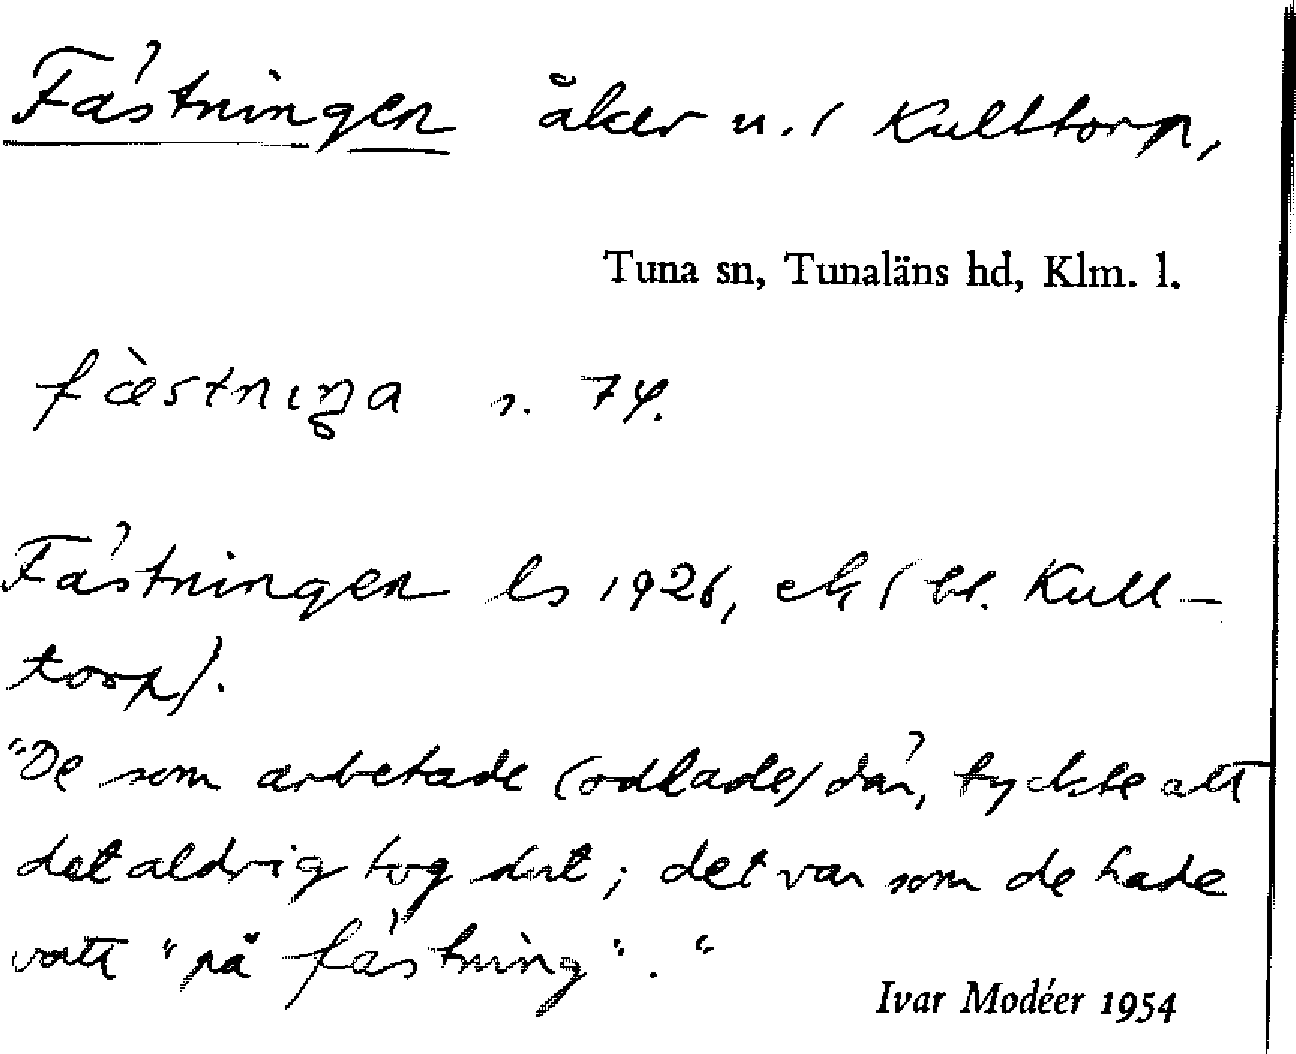 Fästningen åker u. / Kulltorp,
Tuna sn, Tunaläns hd, Klm. l.
fæ̀stnıŋa s. 74.
Fästningen ls 1926, ek ( bl. Kull-
torp).
"De som arbetade (odlade) där, tyckte att
det aldrig tog slut; det var som de hade
vatt "på fästning"."
Ivar Modéer 1954